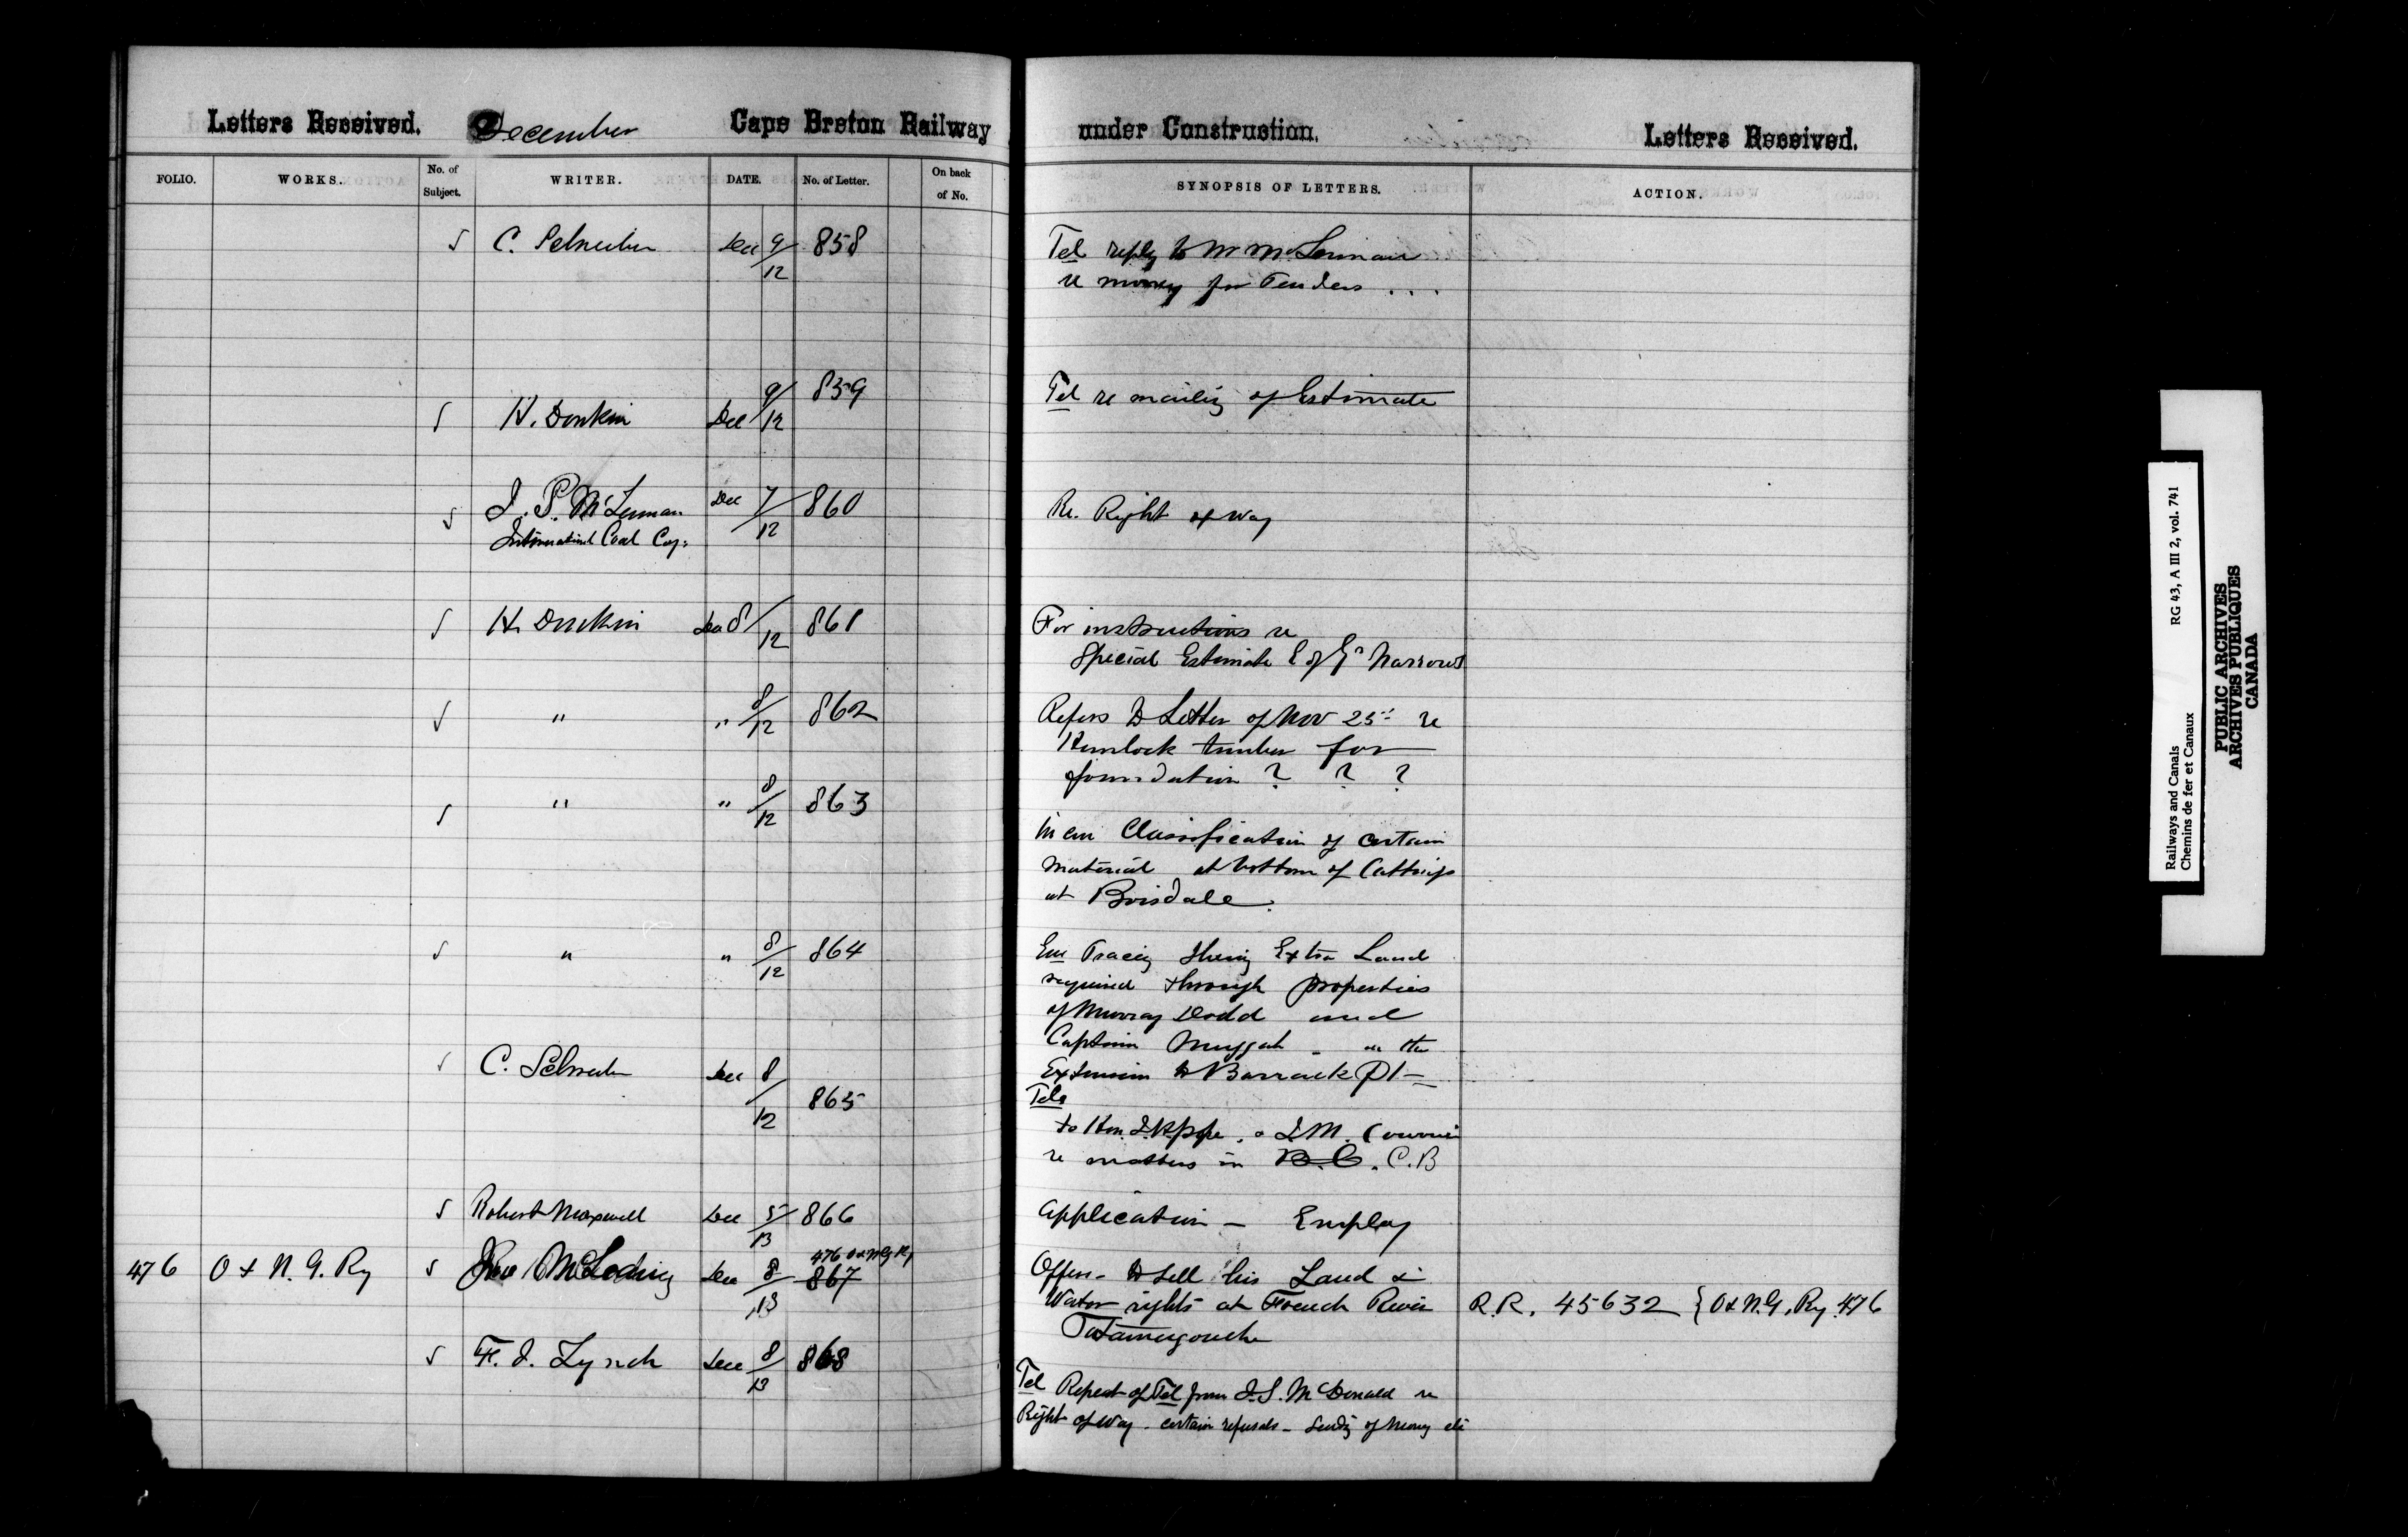 Letters Received. December Cape Breton Railway
under Construction. Letters Received.
FOLIO. WORKS. No. of Subject. WRITER. DATE. No. of Letter. On back of No.
SYNOPSIS OF LETTERS. ACTION.
C. Schreiber Dec 9/12 858
Tel reply to Mr McLennan
re money for Tenders . . .
H. Donkin Dec 9/12 859
Tel re mailing of Estimate
J. P. McLennan Dec 7/12 860
International Coal Coy:
Re. Right of Way
H. Donkin Dec 8/12 861
For instructions re
Special Estimate E of Gr Narrows
" " 8/12 862
Refers to Letter of Nov 25" re
Hemlock timber for
foundation ? ? ?
" " 8/12 863
Classification of certain
material at bottom of Cuttings
at Boisdale.
" " 8/12 864
Tracing Shewing Extra Land
required through properties
of Murray Dodd and
Captain Muggah - on the
Extension to Barrack Pt -
C. Schreiber Dec 8/12 865
Tels
to Hon. J.H. Pope, & J.M.
re matters in B.C. C.B
Robert Maxwell Dec 5/13 866
Application - Employ
476 O & N. G. Ry Dec 8/13 867
476 O & N G Ry
Offers - to sell his Land &
Water rights at French River
Tatamagouche
R.R. 45632 { O & N.G. Ry. 476
F. J. Lynch Dec 8/13 868
Tel Repeat of Tel from J.S. McDonald re
Right of Way - certain refusals - Sending of Money etc
Railways and Canals RG 43, A III 2, vol. 741
Chemins de fer et Canaux
PUBLIC ARCHIVES
ARCHIVES PUBLIQUES
CANADA